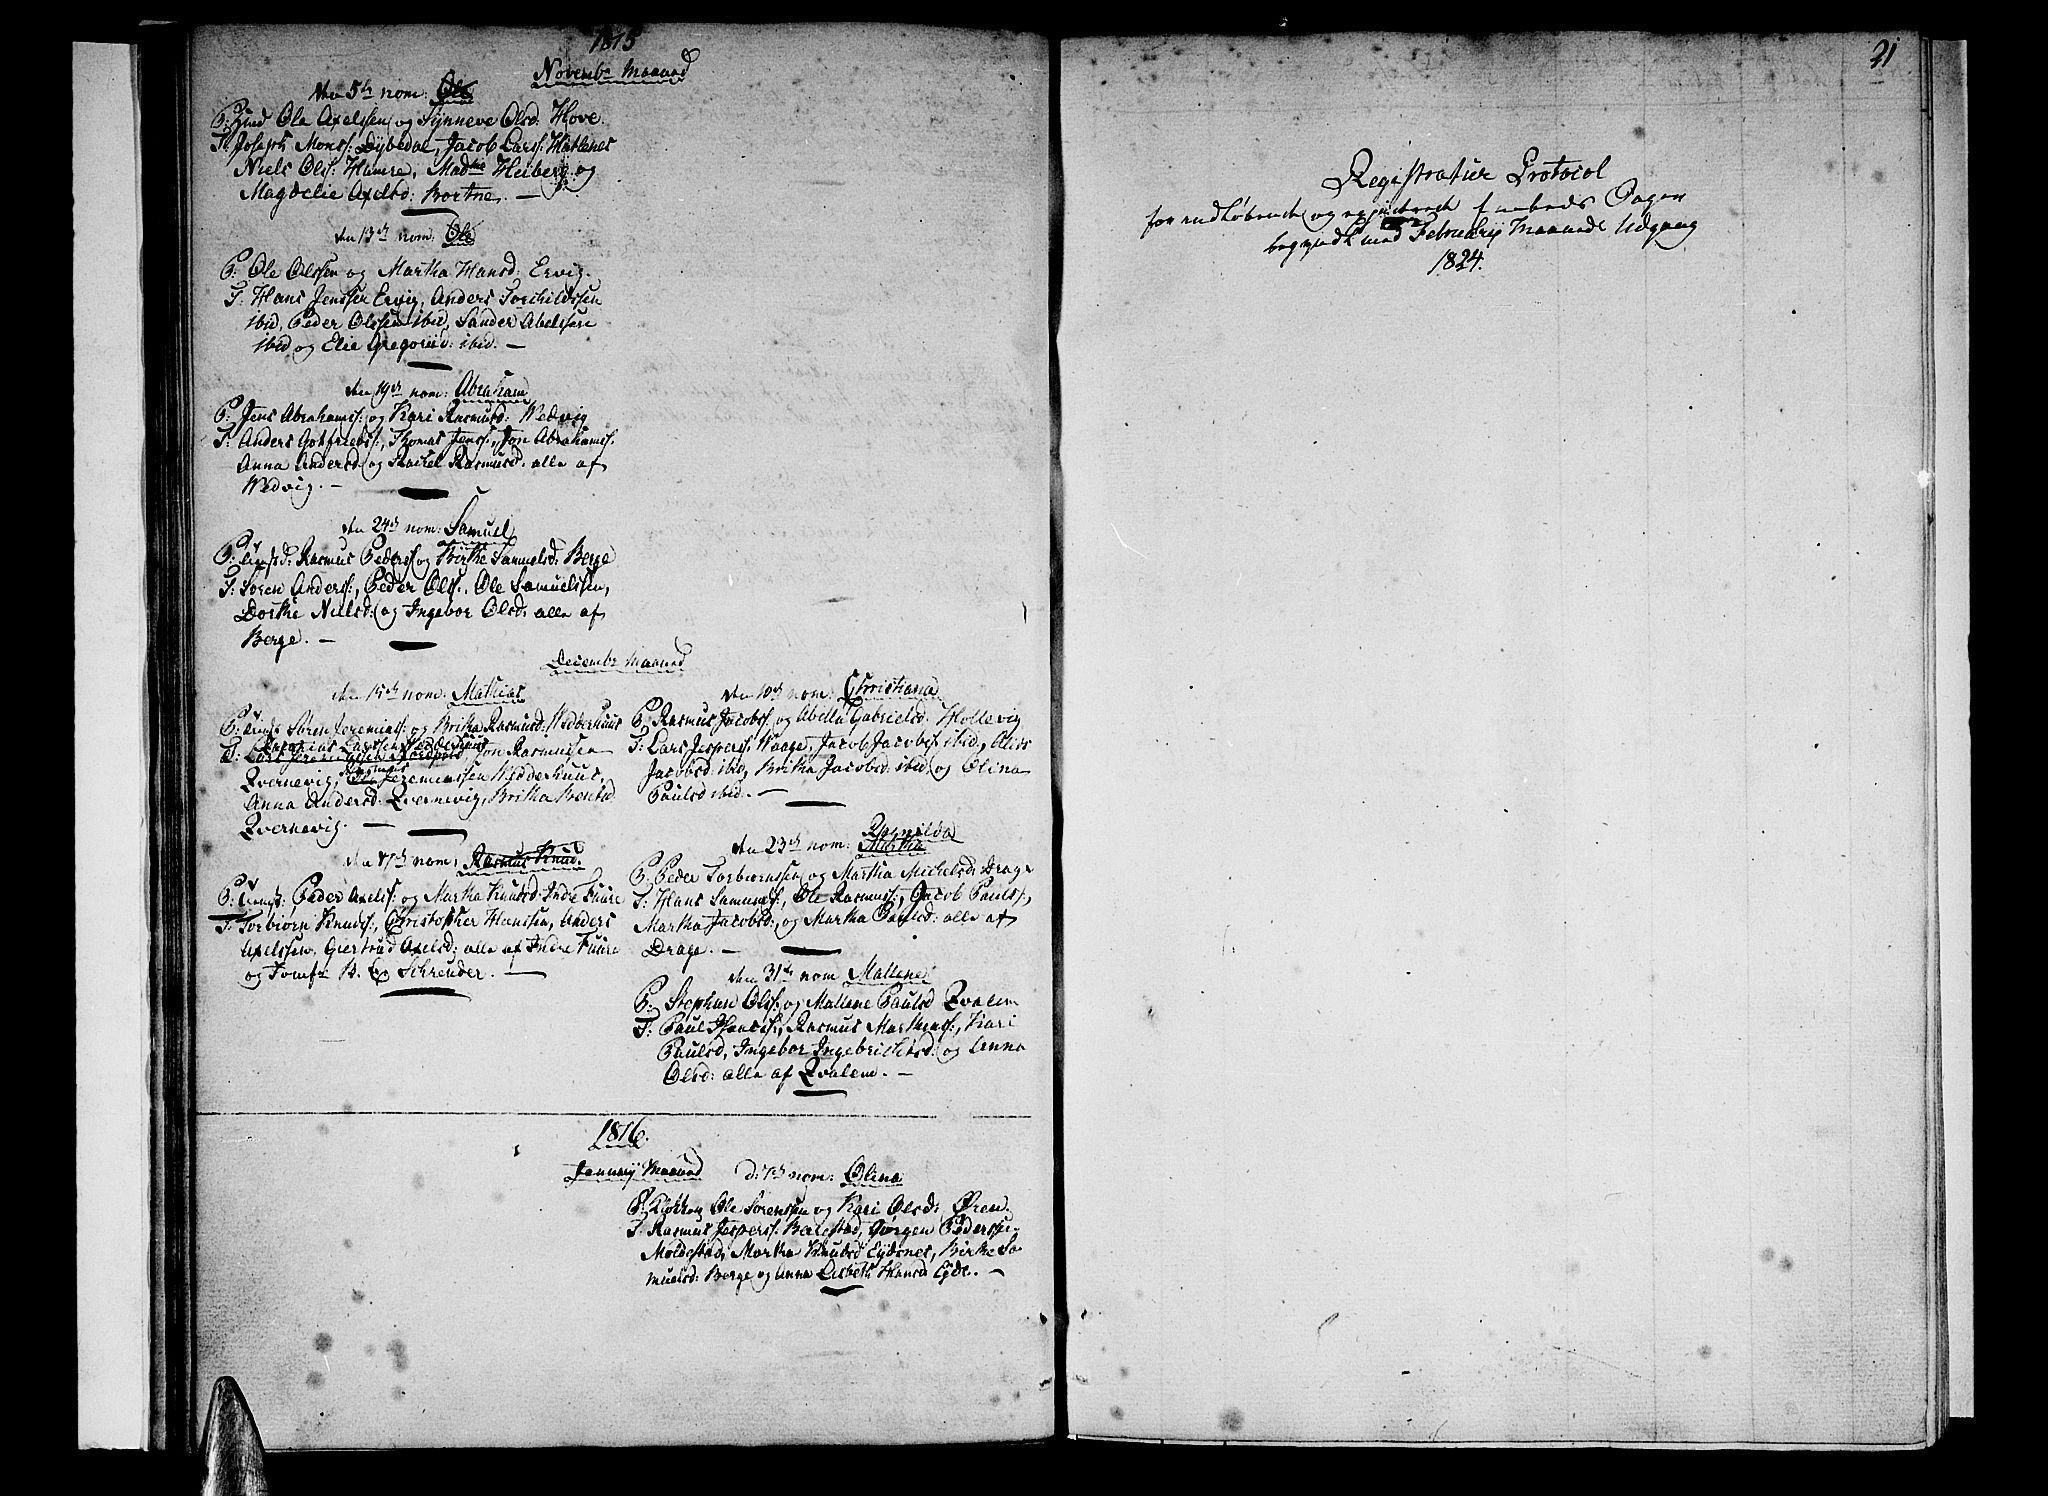 1815
Novembr Maaned
den 5te nom: Ole
Ole Axelssen og Synneve Olsd: Hove.
T: Joseph Monss: Dybedal, Jacob Larss: Hatlenes
Niels Olss: Hamre, Madme Heiberg og
Magdelie Axelsd: Bortne. —
den 13de nom: Ole
P: Ole Olssen og Martha Hansd: Ervig.
T: Hans Jenssen Ervig, Anders Torchildssen
ibid, Peder Olssen ibid, Sander Abelssen
ibid og Elie Gregorid: ibid. —
den 19de nom: Abraham
P: Jens Abrahamss: og Kari Rasmusd: Wedvig
T: Anders Gotfriedss:, Thomas Jenss:, Jon Abrahamss.
Anna Andersd og Rachel Rasmusd. alle af
Wedvig. —
den 24de nom: Samuel
P: Rasmus Pederss og Birthe Samuelsd: Berge
T: Søren Anderss:, Peder Olss. Ole Samuelssen,
Dorthe Nielsd: og Ingebor Olsd: alle af
Berge. —
Decembr Maaned
den 15de nom: Mathias
P: Søren Jeremiass: og Britha Rasmusd: Wedderhuus
Larssen Wedderhuus
T: Lars Jeremiassen Nordpoll Jon Rasmussen
Qvernevig, Rasmus Jeremiassen Wedderhuus,
Anna Andersd. Qvernevig, Britha Bentsd
Qvernevig. —
den 17de nom: Rasmus Knud.
P: Peder Axelss: og Martha Knudsd: Indre Fuure
T: Torbiørn Knudss:, Christopher Hanssen, Anders
Axelssen, Giertrud Axelsd: alle af Indre Fuure
og Jomfr B. Schreuder. —
den 10de nom: Christiana
P: Rasmus Jacobss. og Abella Gabrielsd. Hollevig
T: Lars Jesperss. Waage, Jacob Jacobss. ibid, Alids
Jacobsd: ibid, Britha Jacobsd: ibid. og Olina
Paulsd ibid. —
Ragnilda
den 23de nom: Martha
P: Peder Torbiørnssen og Martha Michelsd: Drage
T: Hans Samuelss:, Ole Rasmuss:, Jacob Paulss,
Martha Jacobsd: og Martha Paulsd: alle af
Drage. —
den 31te nom Mallene
P: Stephan Olss: og Mallene Paulsd Qvalem
T: Paul Hanss:, Rasmus Marthinss:, Kari
Paulsd, Ingebor Ingebrichtsd: og Anna
Olsd: alle af Qvalem. —
1816.
Januarij Maaned d: 7de nom: Olina
P: Ole Sørenssen og Kari Olsd: Øren.
T: Rasmus Jesperss. Berestad, Jørgen Pederssen
Moldestad, Martha Knudsd Eydsnes, Birthe Sa
muelsd: Berge og Anna Lisbeth Hansd Eyde. —
21
Registratur Protocol
for indløbende og Embeds Sager
begyndt med Februarij Maaneds Udgang
1824.